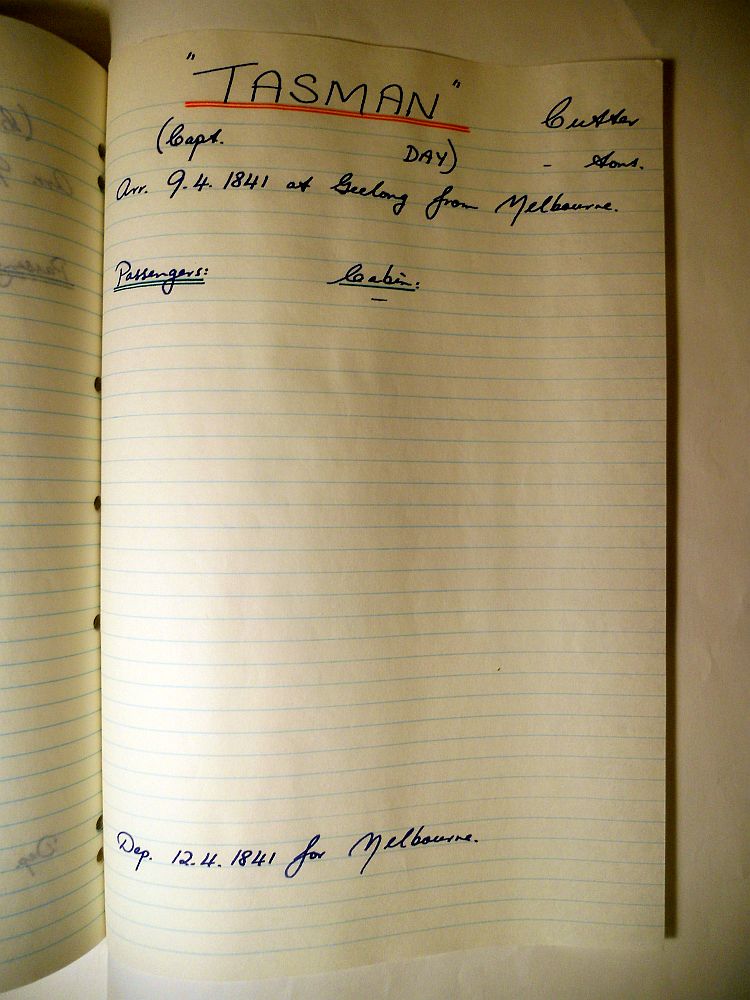 "TASMAN"
Cutter
(Capt. DAY) - tons.
Arr. 9.4.1841 at Geelong from Melbourne.
Passengers: Cabin:
-
Dep. 12.4.1841 for Melbourne.